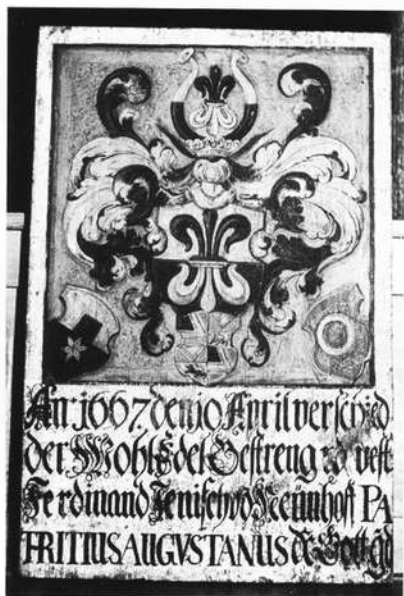 An: 1667. den 10 April verschied
der Wohl Edel Gestreng vd vest
Ferdinand Jenisch vō Neimhoff PA
TRITIUS AUGVSTANUS dē Gott gd